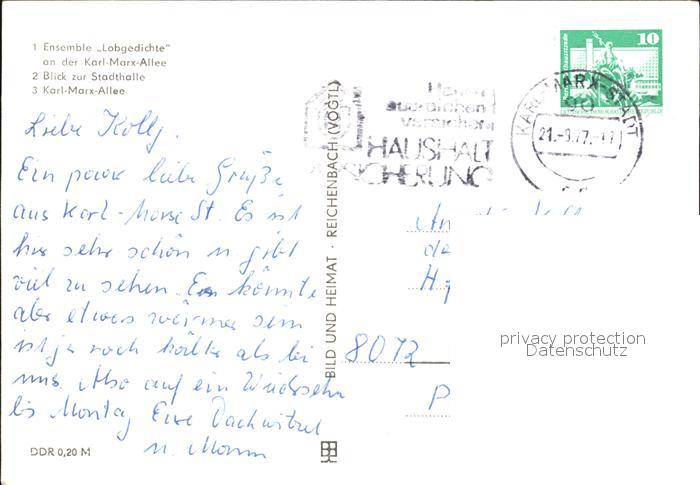 1 Ensemble „Lobgedichte"
an der Karl-Marx-Allee
2 Blick zur Stadthalle
3 Karl-Marx-Allee
10
KARL-MARX-STADT
90
21.-9.77.-17
ausreichend
versichern
HAUSHALT
SICHERUNG
Liebe Kollg.
Ein paar liebe Grüße
aus Karl-Marx St. Es ist
hier sehr schön u gibt
viel zu sehen. Es könnte
aber etwas wärmer sein
ist ja noch kälter als bei
uns. Also auf ein Wiedersehn
bis Montag Eure
u. Mann
DDR 0,20 M
BILD UND HEIMAT · REICHENBACH (VOGTL)
An
de
8072
P
privacy protection
Datenschutz